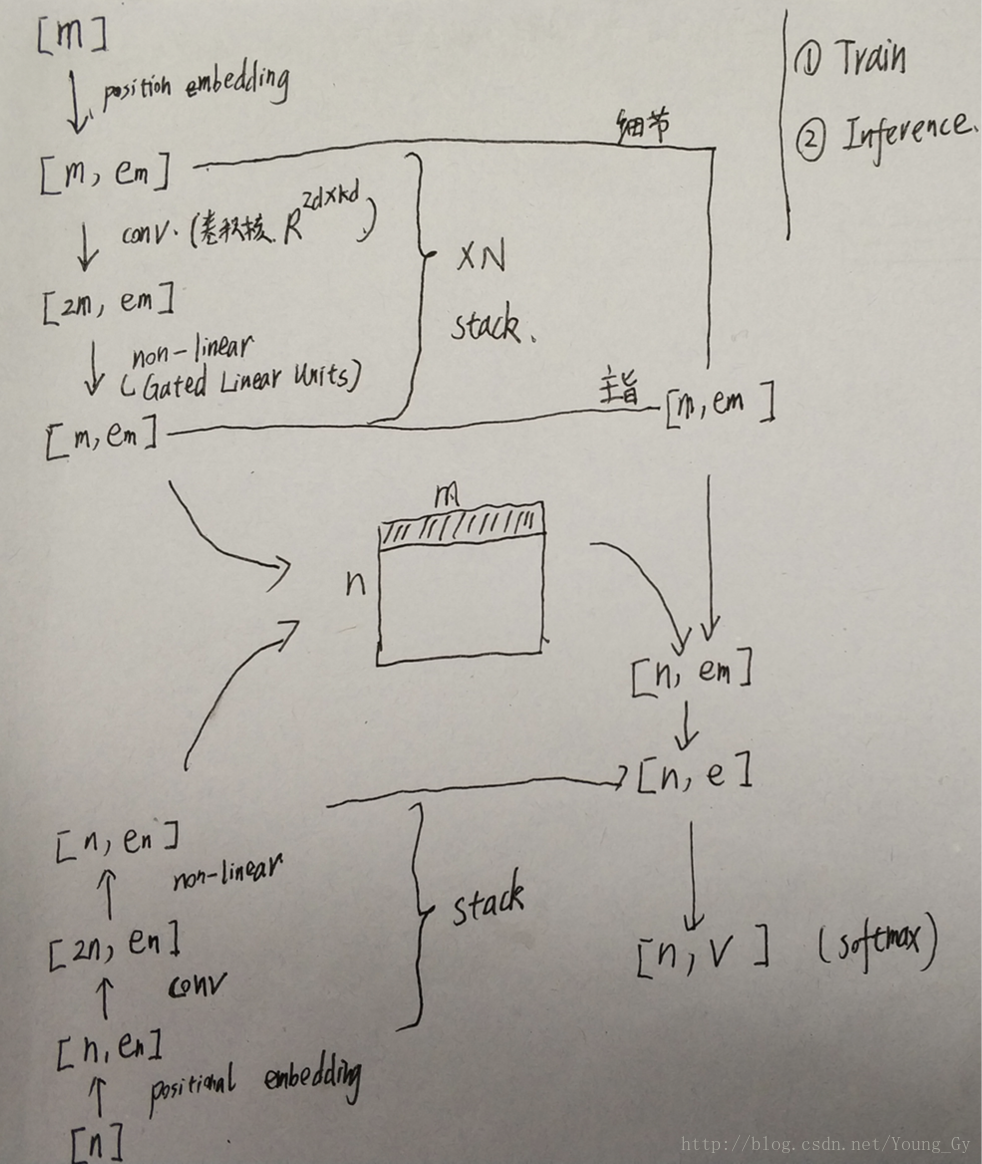 [m]
position embedding
[m, em]
细节
conv. (卷积核. R^{2d×kd})
[2m, em]
×N
stack.
non-linear
(Gated Linear Units)
[m, em]
主旨
[m, em]
① Train
② Inference.
m
n
[n, em]
[n, e]
[n, V] (softmax)
[n, en]
non-linear
[2n, en]
conv
[n, en]
positional embedding
[n]
stack
http://blog.csdn.net/Young_Gy